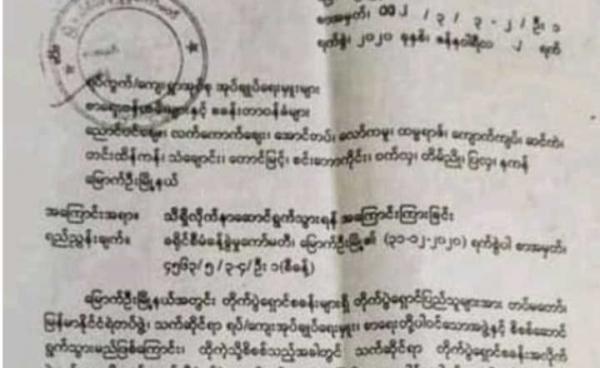 စာအမှတ်၊ ၀၀၂ / ၃ / ၃ - ၂ / ဦး ၁
ရက်စွဲ၊ ၂၀၂၀ ခုနှစ်၊ ဇန်နဝါရီလ ၂ ရက်
ရပ်ကွက်/ကျေးရွာအုပ်စု အုပ်ချုပ်ရေးမှူးများ
စာရေးဝန်ထမ်းများနှင့် စခန်းတာဝန်ခံများ
ညောင်ပင်ဈေး၊ လက်ကောက်ဈေး၊ အောင်တပ်၊ လော်ကမူ၊ ထမ္မရာဇ်၊ ကျောက်ကျပ်၊ ဆင်ကဲ၊
တင်းထိန်ကန်၊ သံချောင်း၊ တောင်မြင့်၊ စင်းဘောကိုင်း၊ ဝက်လှ၊ တိမ်ညို၊ ပြလှ၊ နကန်
မြောက်ဦးမြို့နယ်
အကြောင်းအရာ။ သိရှိလိုက်နာဆောင်ရွက်သွားရန် အကြောင်းကြားခြင်း
ရည်ညွှန်းချက်။ ခရိုင်စီမံခန့်ခွဲမှုကော်မတီ၊ မြောက်ဦးမြို့၏ (၃၁-၁၂-၂၀၂၀) ရက်စွဲပါ စာအမှတ်၊
၄၅၆၃/၅ /၃-၄/ဦး ၁(စီခန့်)
မြောက်ဦးမြို့နယ်အတွင်း တိုက်ပွဲရှောင်စခန်းများရှိ တိုက်ပွဲရှောင်ပြည်သူများအား တပ်မတော်၊
မြန်မာနိုင်ငံရဲတပ်ဖွဲ့၊ သက်ဆိုင်ရာ ရပ်/ကျေးအုပ်ချုပ်ရေးမှူး၊ စာရေးတို့ပါဝင်သောအဖွဲ့နှင့် စိစစ်ဆောင်
ရွက်သွားမည်ဖြစ်ကြောင်း၊ ထိုကဲ့သို့စိစစ်သည့်အခါတွင် သက်ဆိုင်ရာ တိုက်ပွဲရှောင်စခန်းအလိုက်